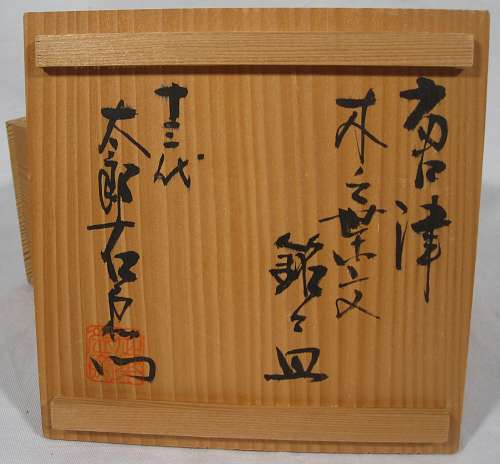 唐津
木之葉文
銘々皿
十三代
太郎右衛門